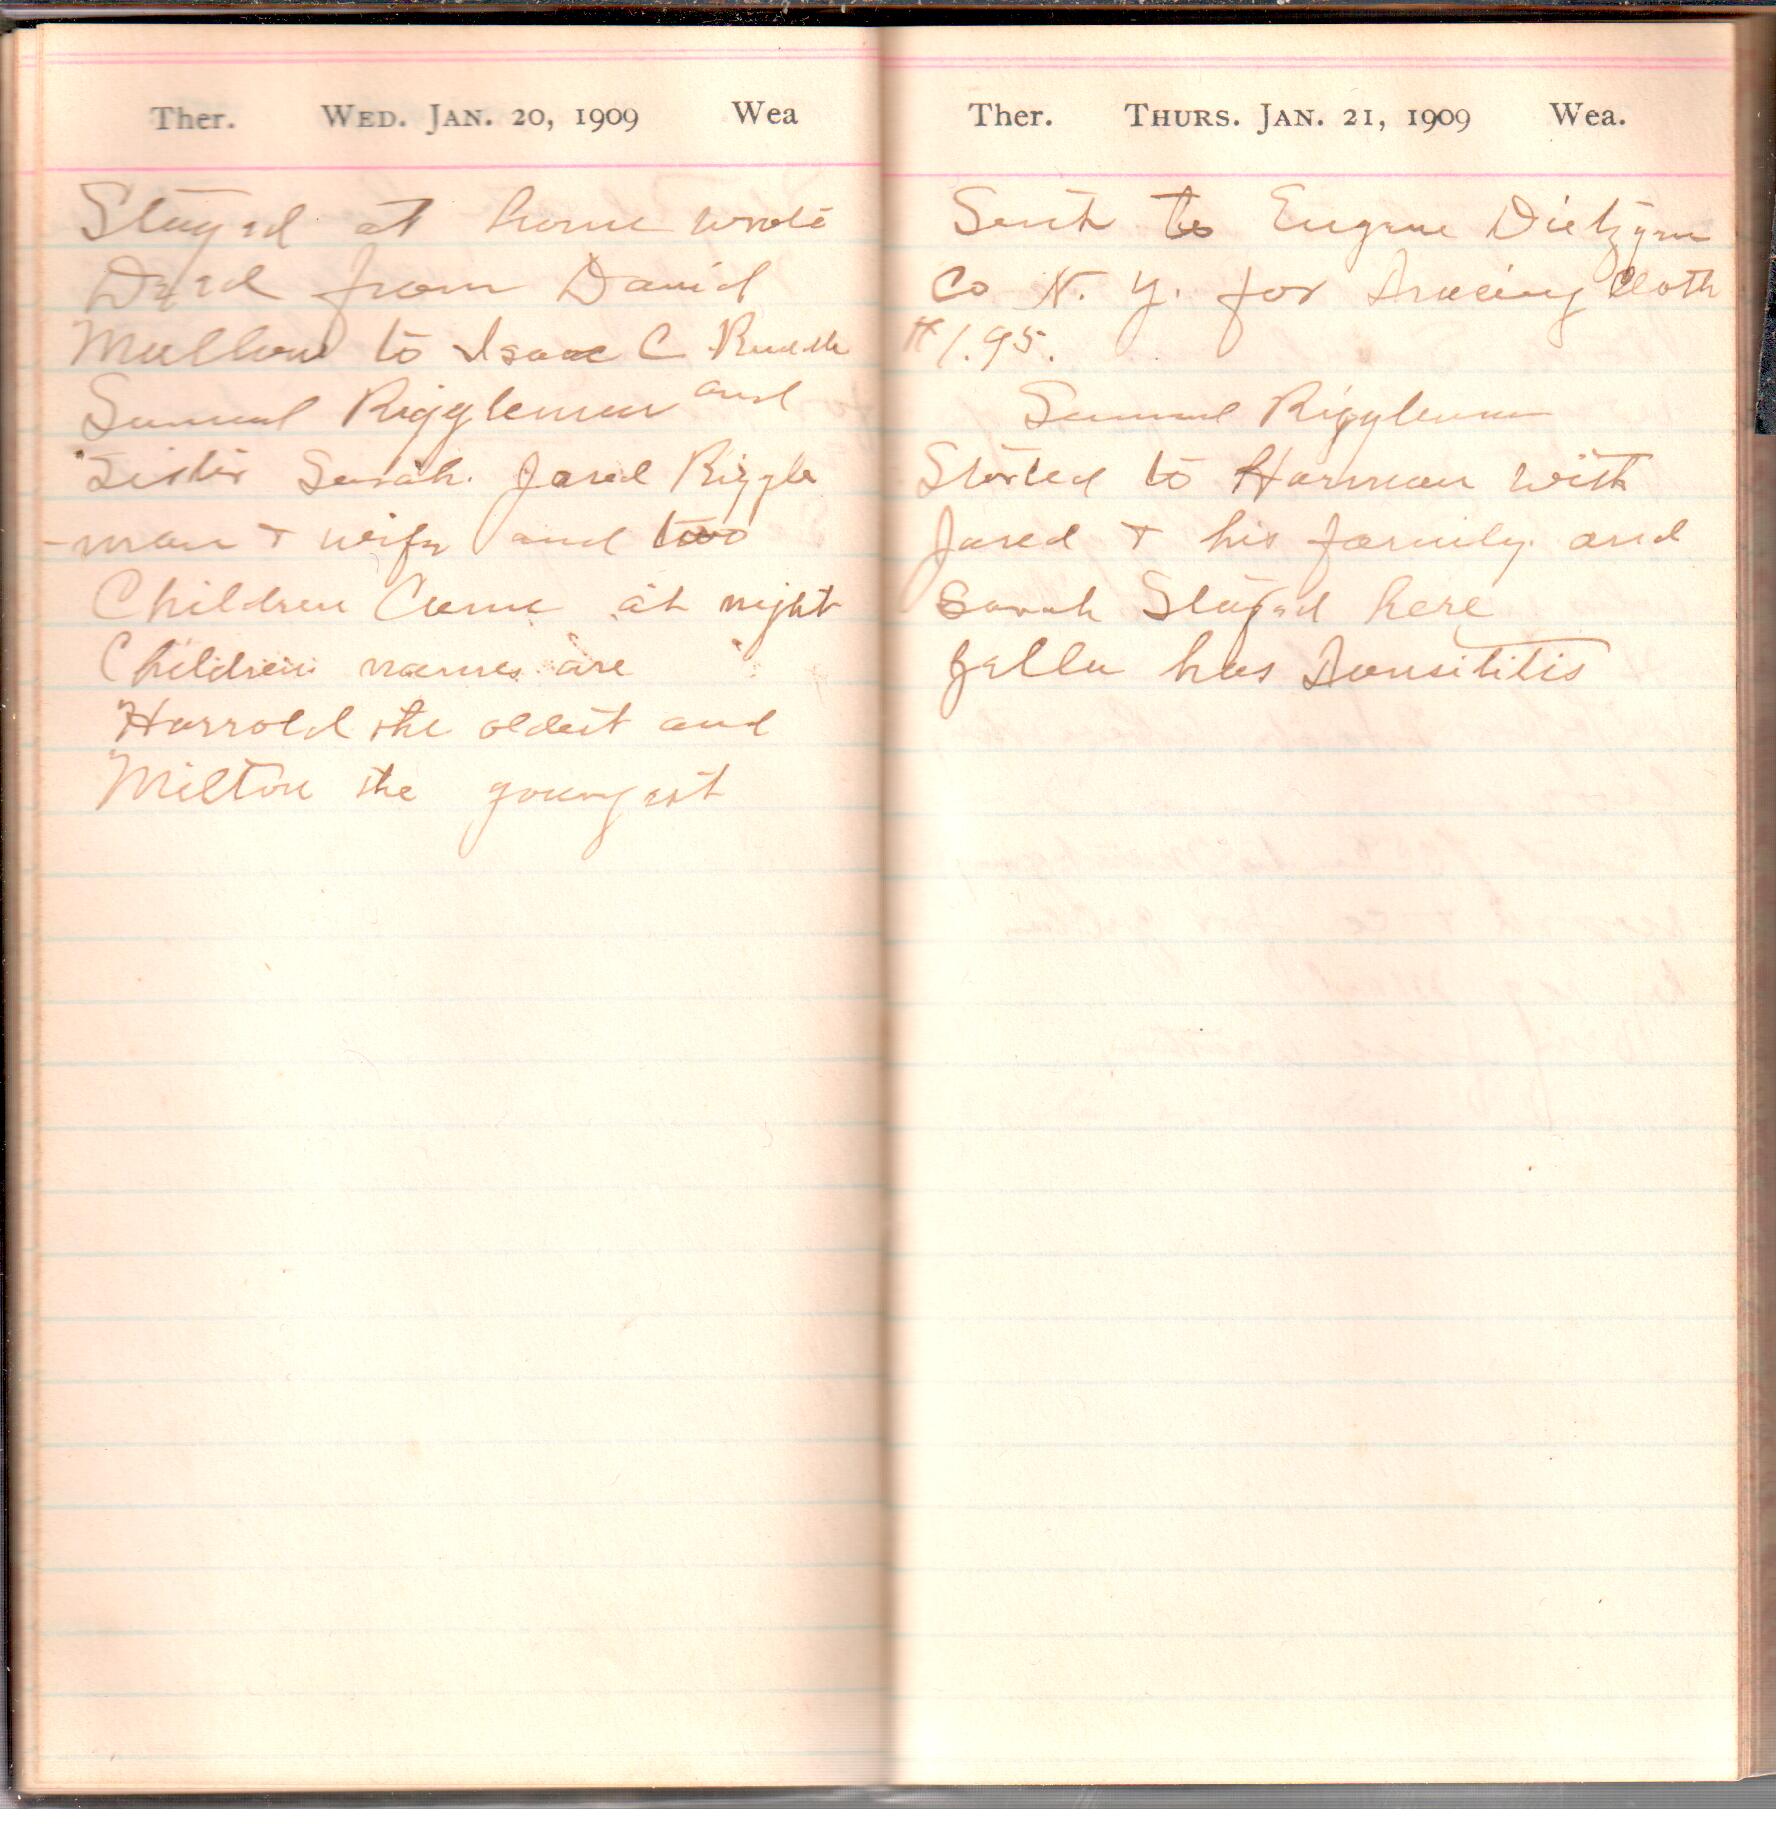 Ther. WED. JAN. 20, 1909 Wea
Stayed at home wrote
Deed from David
Mallow to Isaac C
Samuel Riggleman and
Sister Sarah. Jared Riggle
-man + wife and two
Children Came at night
Children names are
Harrold the oldest and
Milton the youngest
Ther. THURS. JAN. 21, 1909 Wea.
Sent to Eugene Dietzgen
Co N. Y. for Tracing Cloth
$1.95.
Samuel Riggleman
Started to Harman with
Jared + his family and
Sarah Stayed here
has Tonsilitis